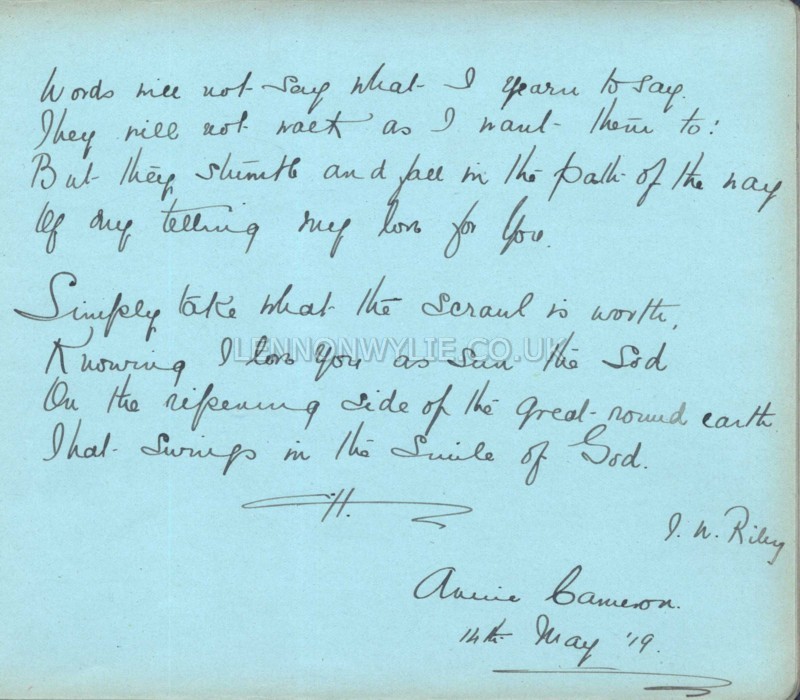 Words will not say what I yearn to say.
They will not walk as I want them to:
But they stumble and fall in the path of the way
Of my telling my love for you.
Simply take what the scrawl is worth,
LENNONWYLIE.CO.UK
Knowing I love you as sun the sod
On the ripening side of the great round earth
That swings in the smile of God.
J. W. Riley
Annie Cameron.
14th May '19.